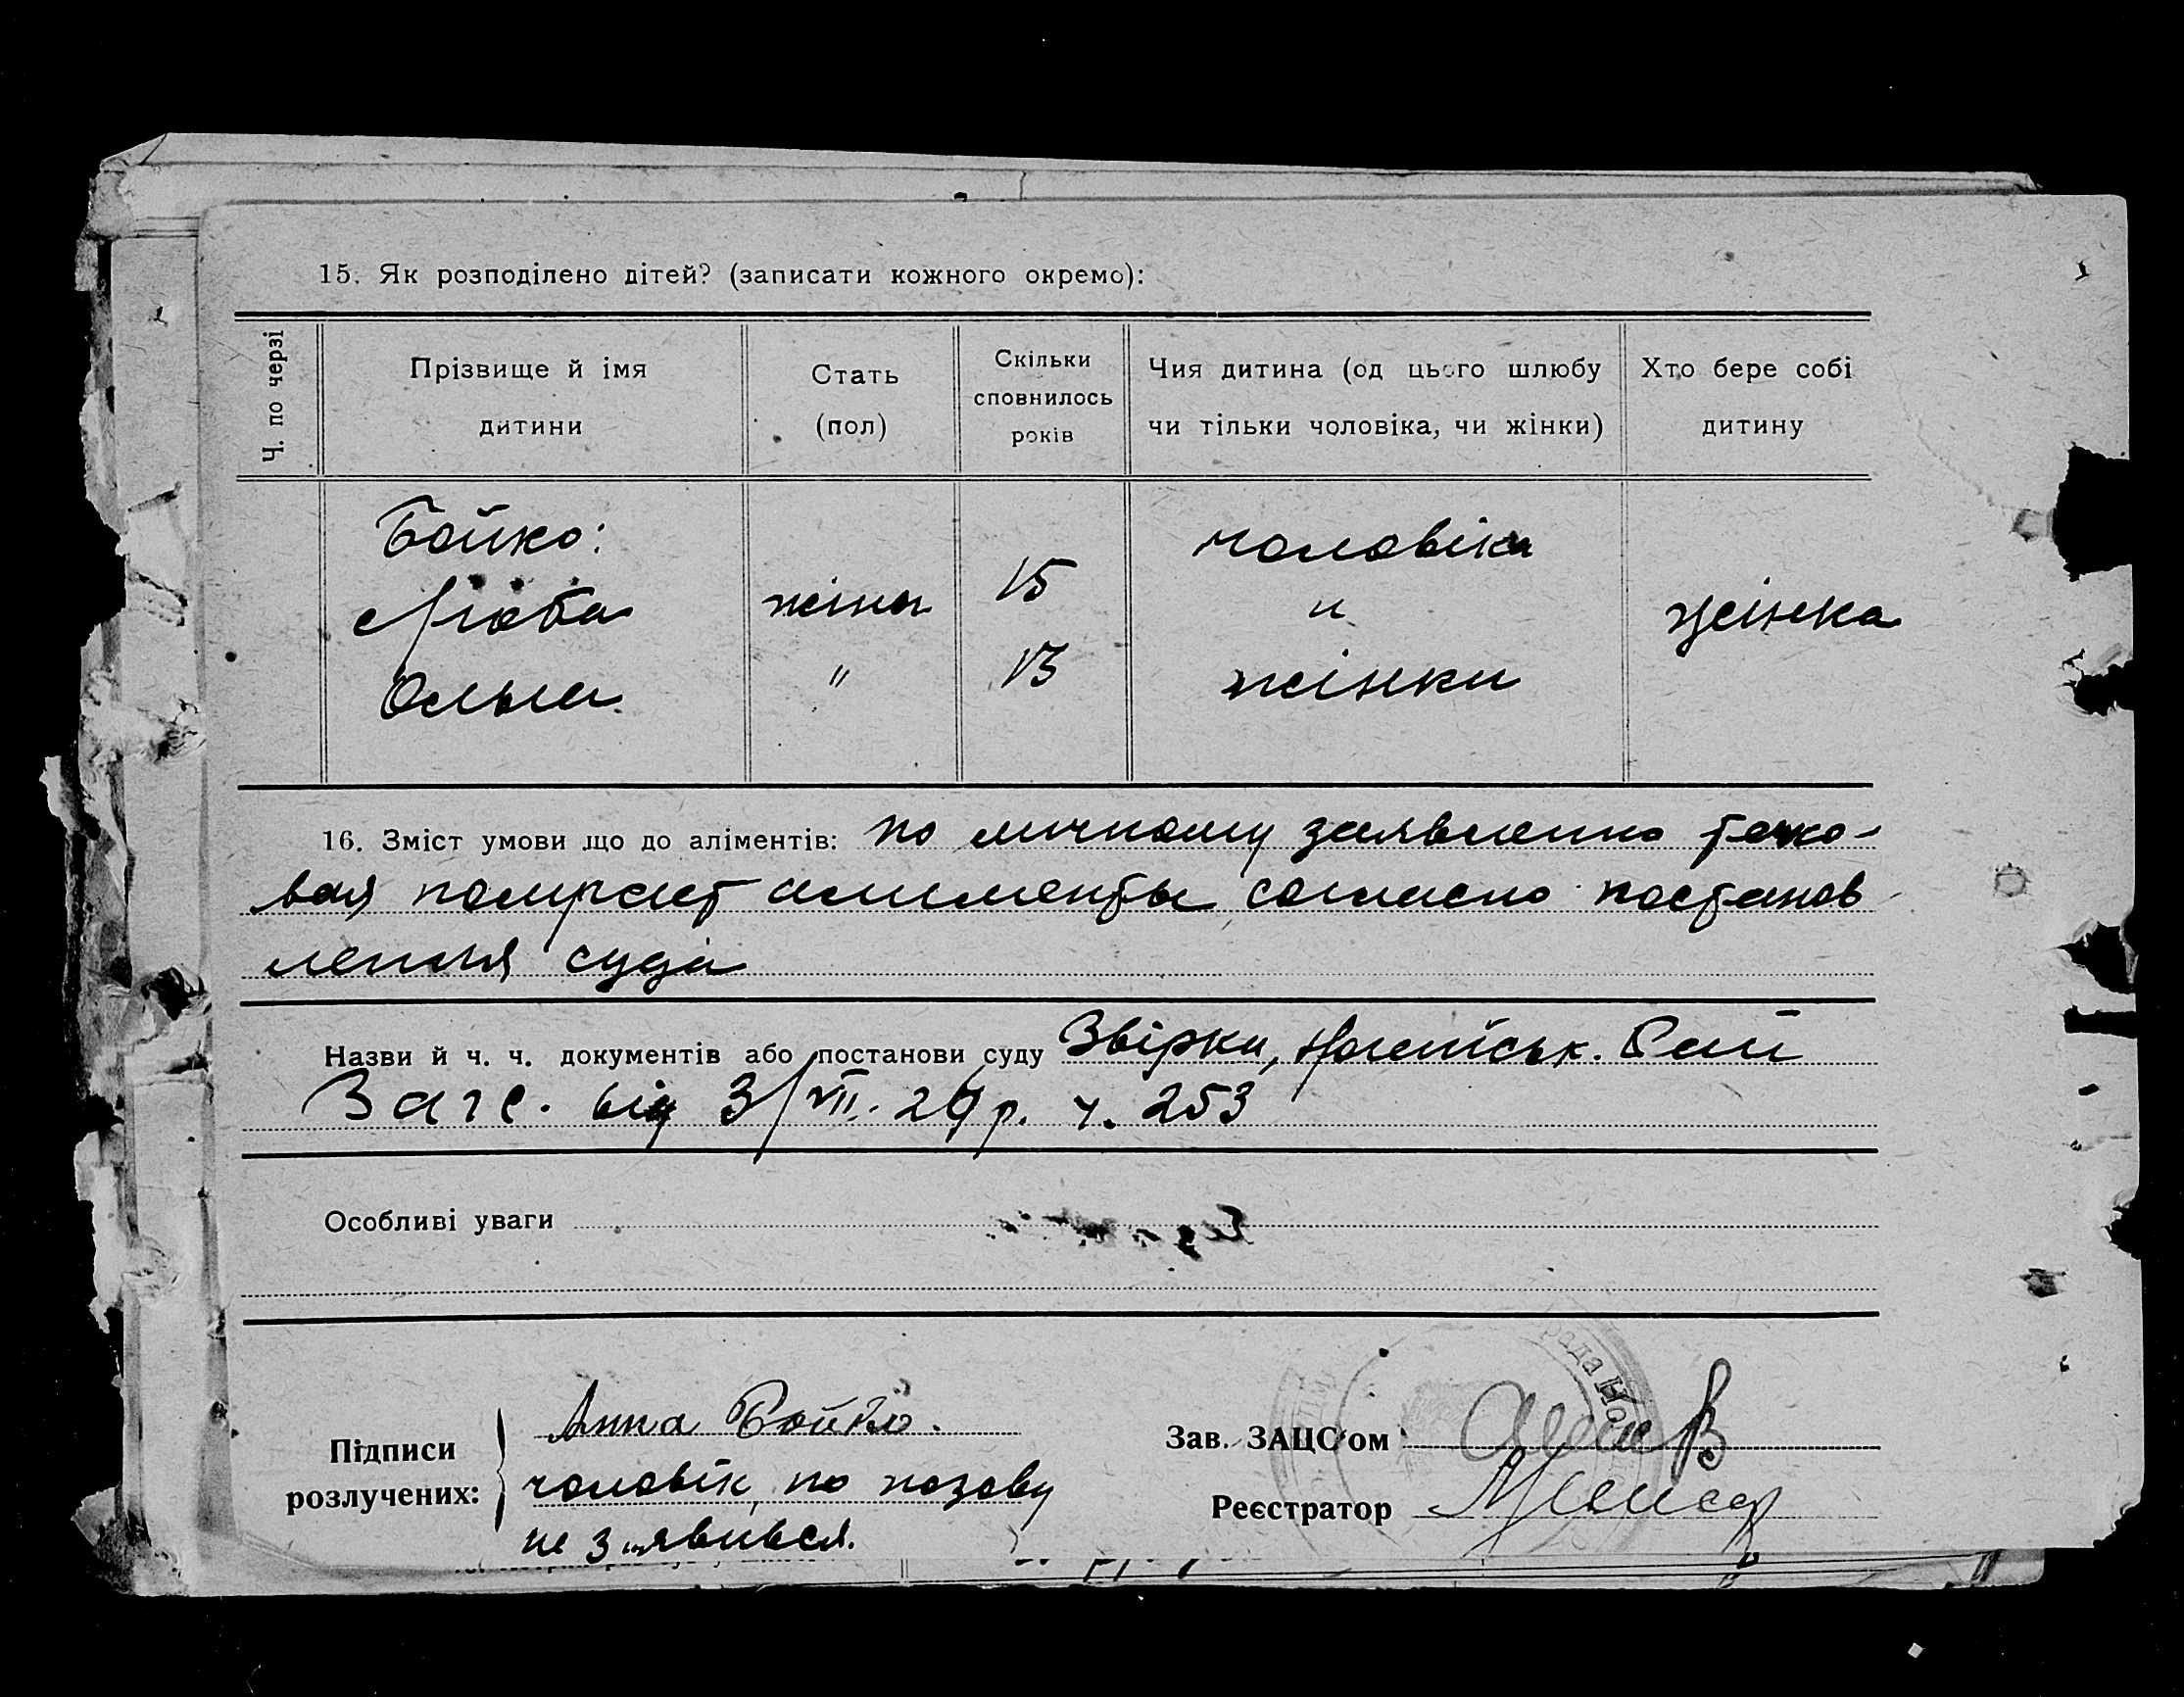 15. Як розподілено дітей? (записати кожного окремо):
Ч. по черзі
Прізвище й імя дитини
Стать (пол)
Скільки сповнилось років
Чия дитина (од цього шлюбу чи тільки чоловіка, чи жінки)
Хто бере собі дитину
Бойко: чоловіка
Люба жіноч 15 и жінка
Ольга " 13 жінки
16. Зміст умови що до аліментів: по личному заявлению тако-
вая получает алименты согласно постанов
ления суда
Назви й ч. ч. документів або постанови суду Звірки, Ногайськ. Рай
Загс. від 3/VII. 29р. ч. 253
Особливі уваги
Підписи розлучених:
Анна Бойко.
чоловік, по позову
не з"явився.
Зав. ЗАЦС'ом
Реєстратор
рада Но